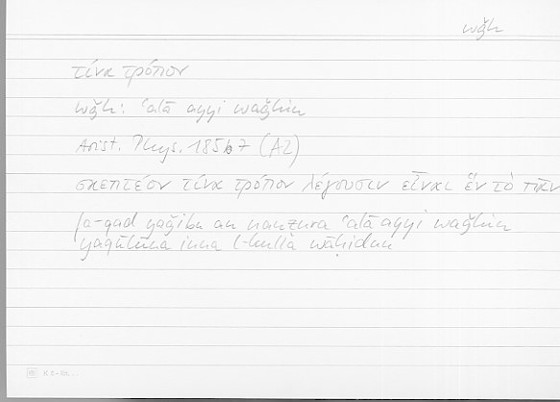 wǧh
τίνα τρόπον
wǧh: ʿalā ayyi waǧhin
Arist. Phys. 185b7 (A2)
σκεπτέον τίνα τρόπον λέγουσιν εἶναι ἓν τὸ πᾶν
fa-qad yaǧibu an nanẓura ʿalā ayyi waǧhin
yaqūlūna inna l-kulla wāḥidun